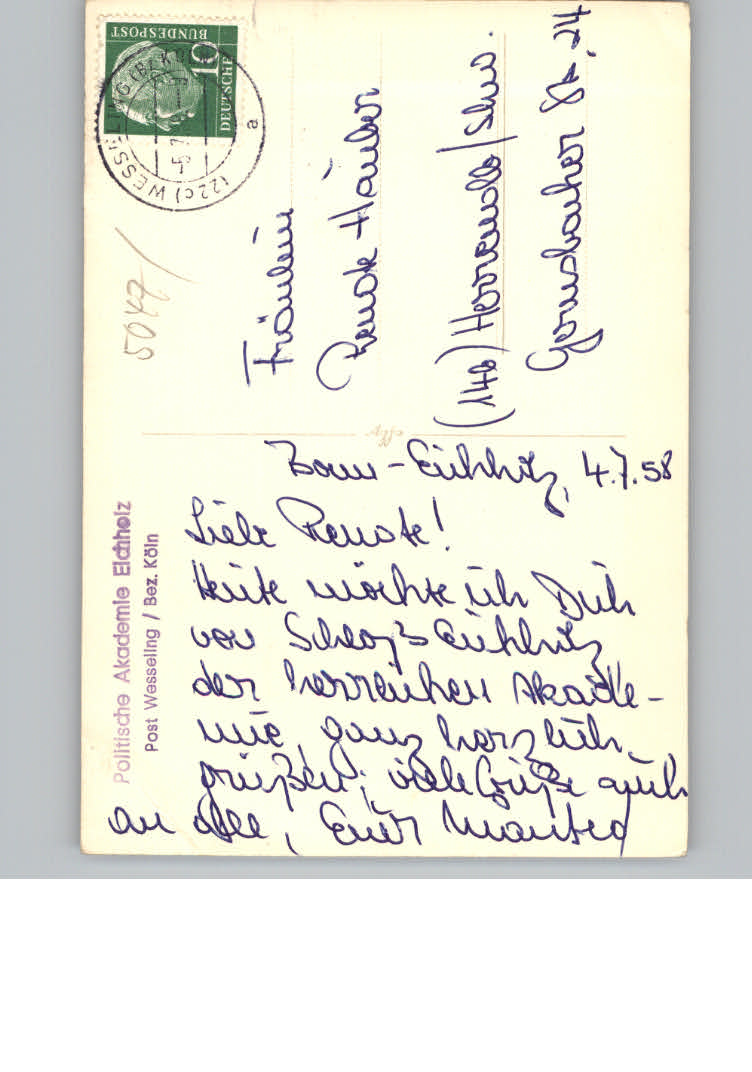 DEUTSCHE
BUNDESPOST
10
(22c) WESSELING (Bz. KÖLN)
a
5047/
Fräulein
Renate Häuber
(14b) Herrenalb/Schw.
Gernsbacher Str. 24
Politische Akademie Eichholz
Post Wesseling / Bez. Köln
Bonn-Eichholz, 4.7.58
Liebe Renate!
Heute möchte ich Dich
von Schloß Eichholz
der herrlichen Akade-
mie, ganz herzlich
grüßen; viele Grüße auch
an alle, Euer Manfred